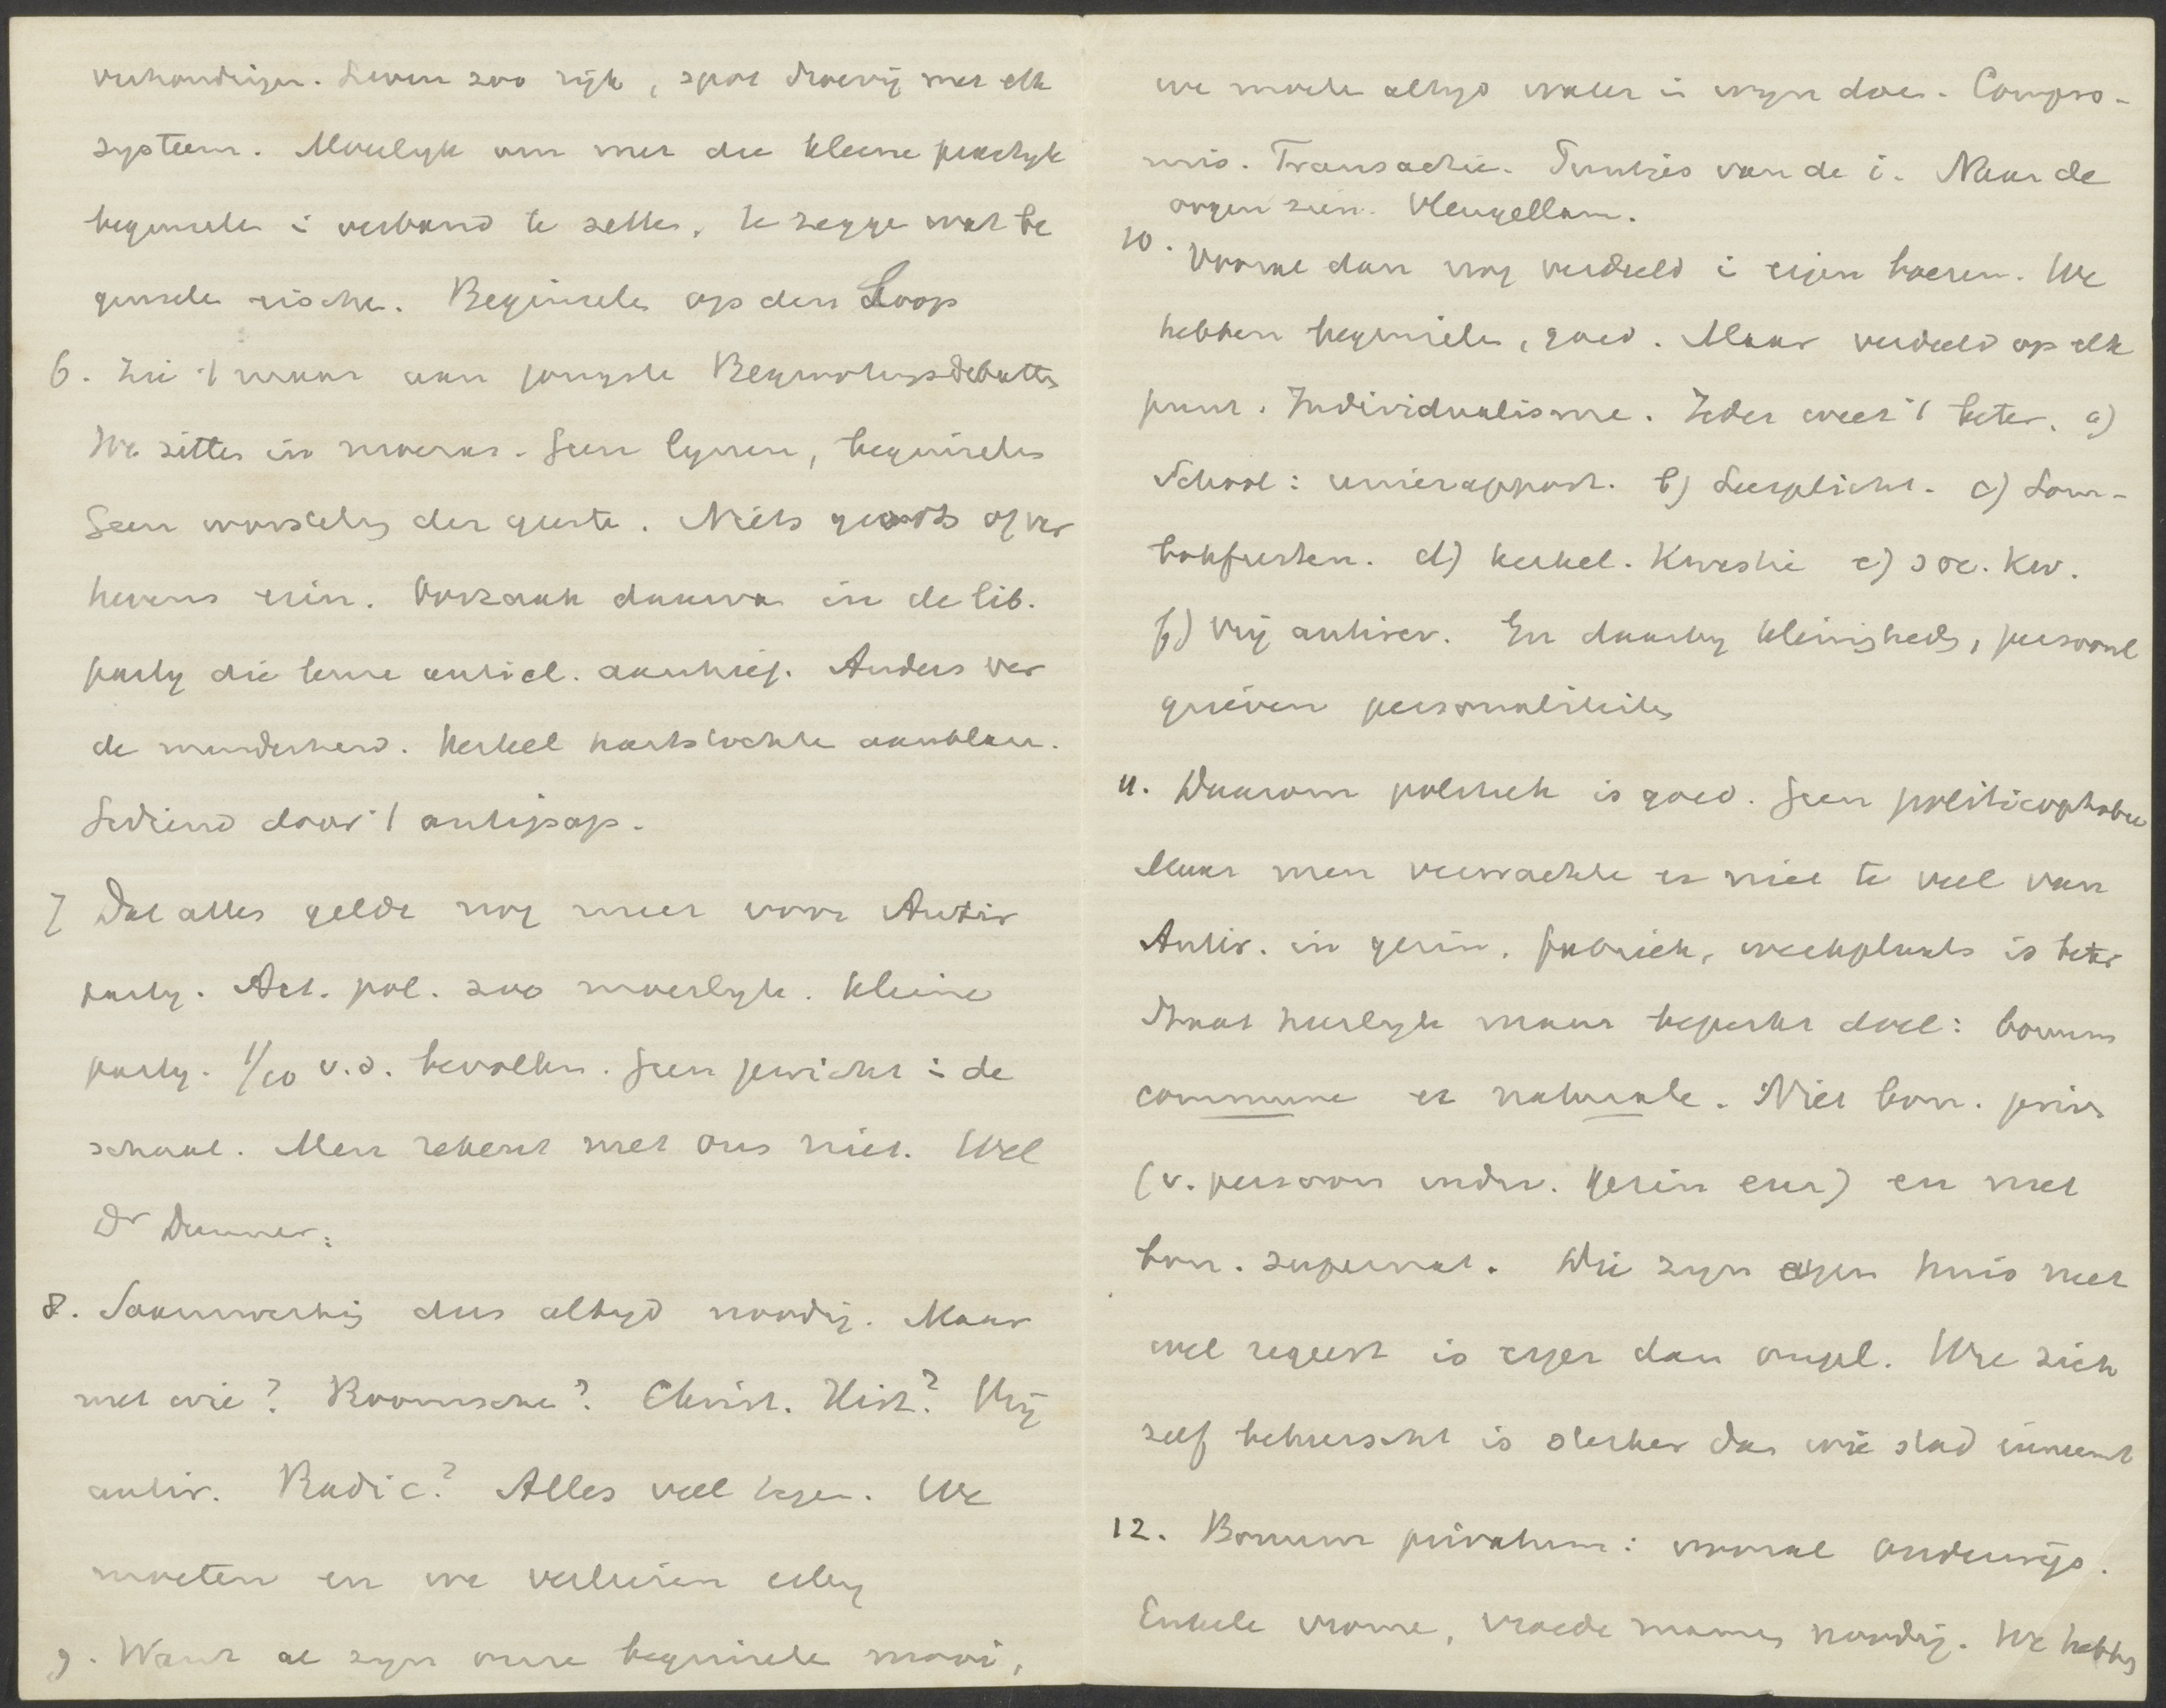 verhoudingen. Leven zoo rijk, spot droevig met elk
systeem. Moeilyk om met die kleine practyk
beginselen i verband te zetten, te zeggen wat be
ginselen eischen. Beginselen op den Loop
6. Zie 't maar aan jongste Begrootingsdebatten
We zitten in moeras. Geen lynen, beginselen
Geen worsteling der geesten. Niets groots of ver
hevens erin. Oorzaak daarvan in de lib.
party die leuze anticl. aanhief. Anders ver
de minderheid. Kerkel hartstochten aanblazen.
Gediend door 't antipap.
7 Dat alles geldt nog meer voor Antir
party. Act. pol. zoo moeilyk. Kleine
party. 1/10 v.d. bevolkin. Geen gewicht i de
schaal. Men rekent met ons niet. Wel
Dr
8. Samenwerking dus altyd noodig. Maar
met wie? Roomsche? Christ. Hist? Vrij
antir. Radic? Alles veel tegen. We
moeten en we verliezen erby
9. Want al zyn onze beginselen mooi,
we moeten altyd water i wyn doen. Compro-
mis. Transactie. Puntjes van de i. Naar de
oogen zien. Vleugellam.
10. Vooral dan nog verdeeld i eigen boezem. We
hebben beginselen, goed. Maar verdeeld op elk
punt. Individualisme. Ieder weet 't beter. a)
School: unierapport. b) Leerplicht. c) Lom-
bokfeesten. d) kerkel. Kwestie e) soc. Kw.
f) Vrij antirev. En daarby kleinigheden, persoonl
grieven personaliteiten
11. Daarom politiek is goed. Geen politicophobie
Maar men verwachte er niet te veel van
Antir. in gezin, fabriek, werkplaats is beter
Staat heerlyk maar beperkt doel: bonum
commune et naturale. Niet bon. priv.
(v. persoon indiv. gezin enz) en niet
bon. supernat. Wie zyn eigen huis niet
wel regeert is erger dan ongel. Wie zich
zelf beheerscht is sterker dan wie stad inneemt
12. Bonum privatum: vooral Onderwijs.
Enkele vrome, vroede mannen noodig. We hebben